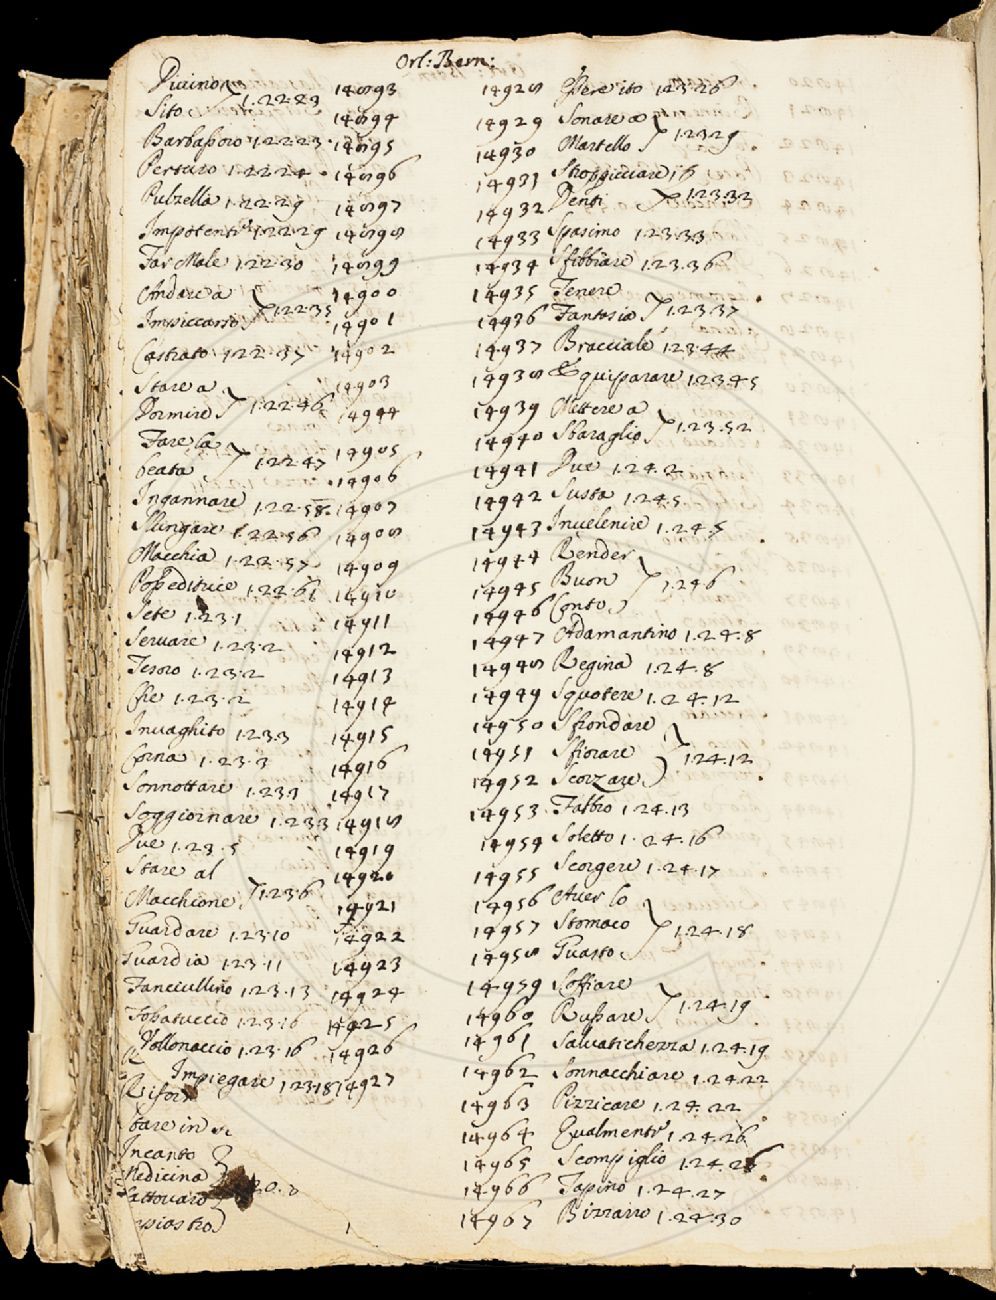 Orl: Bern:
Divino
Sito 1.22.23
Barbassoro 1.22.23
Pertuso 1.22.24
Pulzella 1.22.29
Impotente 1.22.29
Far Male 1.22.30
Andare a
Impiccarsi 1.22.35
Castrato 1.22.37
Stare a
Dormire 1.22.46
Fare la
beata 1.22.47
Ingannare 1.22.58
Slungare 1.22.56
Macchia 1.22.57
1.22.61
Sete 1.23.1
Servare 1.23.2
Tesoro 1.23.2
Che 1.23.2
Invaghito 1.23.3
Corna 1.23.3
Sonnottare 1.23.3
Soggiornare 1.23.3
Due 1.23.5
Stare al
Macchione 1.23.6
Guardare 1.23.10
Guardia 1.23.11
Fanciullino 1.23.13
1.23.16
Vollonaccio 1.23.16
Impiegare 1.23.18
bare in
Incanto
Medicina
Lattovaro
14893
14894
14895
14896
14897
14898
14899
14900
14901
14902
14903
14904
14905
14906
14907
14908
14909
14910
14911
14912
14913
14914
14915
14916
14917
14918
14919
14920
14921
14922
14923
14924
14925
14926
14927
14928 Perito 1.23.26
14929 Sonare a
14930 Martello 1.23.29
14931 Stroppicciare i
14932 Denti 1.23.32
14933 Spasimo 1.23.33
14934 Sfibbiare 1.23.36
14935 Tenere
14936 Fantasia 1.23.37
14937 Bracciale 1.23.44
14938 Equiparare 1.23.45
14939 Mettere a
14940 Sbaraglio 1.23.52
14941 Due 1.24.2
14942 Susta 1.24.5
14943 Invelenire 1.24.5
14944 Render
14945 Buon 1.24.6
14946 Conto
14947 Adamantino 1.24.8
14948 Regina 1.24.8
14949 Squotere 1.24.12
14950 Sfrondare
14951 Sfiorare 1.24.12
14952 Scorzare
14953 Fabbro 1.24.13
14954 Soletto 1.24.16
14955 Scorgere 1.24.17
14956 Aver lo
14957 Stomaco 1.24.18
14958 Guasto
14959 Soffiare
14960 Russare 1.24.19
14961 Salvatichezza 1.24.19
14962 Sonnacchiare 1.24.22
14963 Pizzicare 1.24.22
14964 Equalmente 1.24.26
14965 Scompiglio 1.24.26
14966 Tapino 1.24.27
14967 Bizzarro 1.24.30